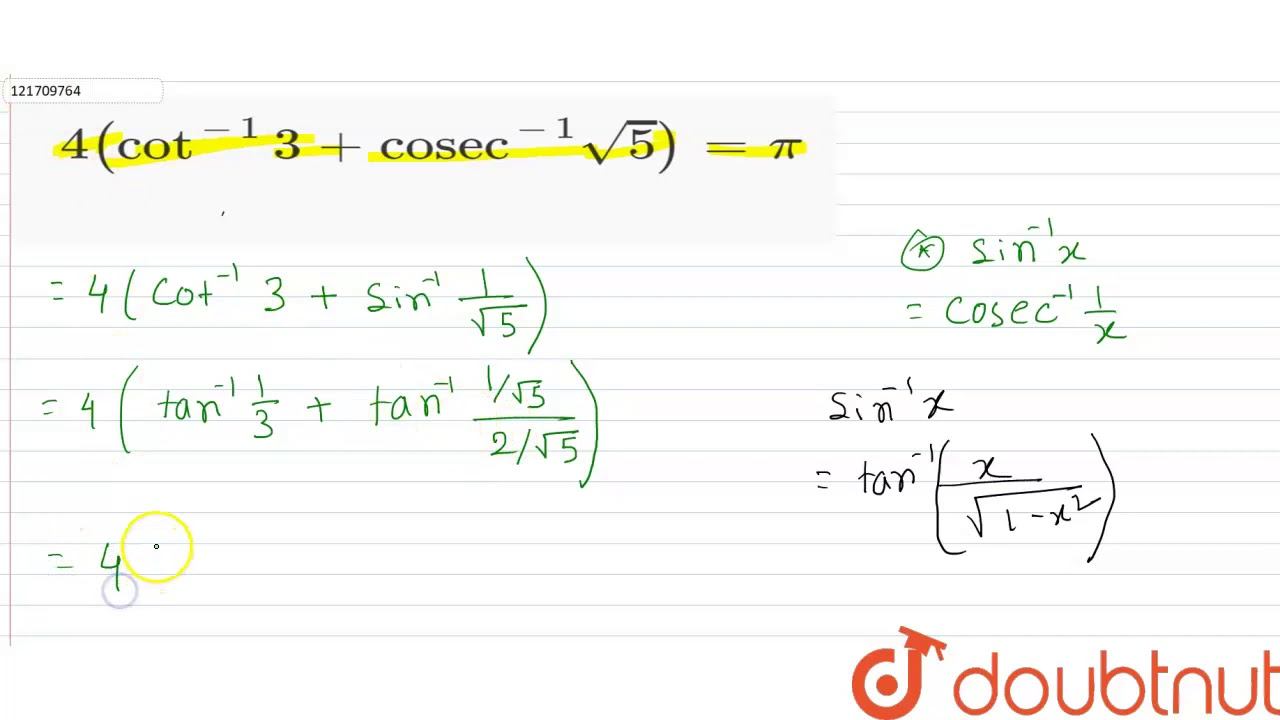 121709764
4(cot⁻¹ 3 + cosec⁻¹ √5) = π
= 4 ( Cot⁻¹ 3 + Sin⁻¹ 1/√5 )
= 4 ( tan⁻¹ 1/3 + tan⁻¹ (1/√5)/(2/√5) )
= 4
* Sin⁻¹ x
= Cosec⁻¹ 1/x
Sin⁻¹ x
= tan⁻¹ ( x/√(1-x²) )
doubtnut